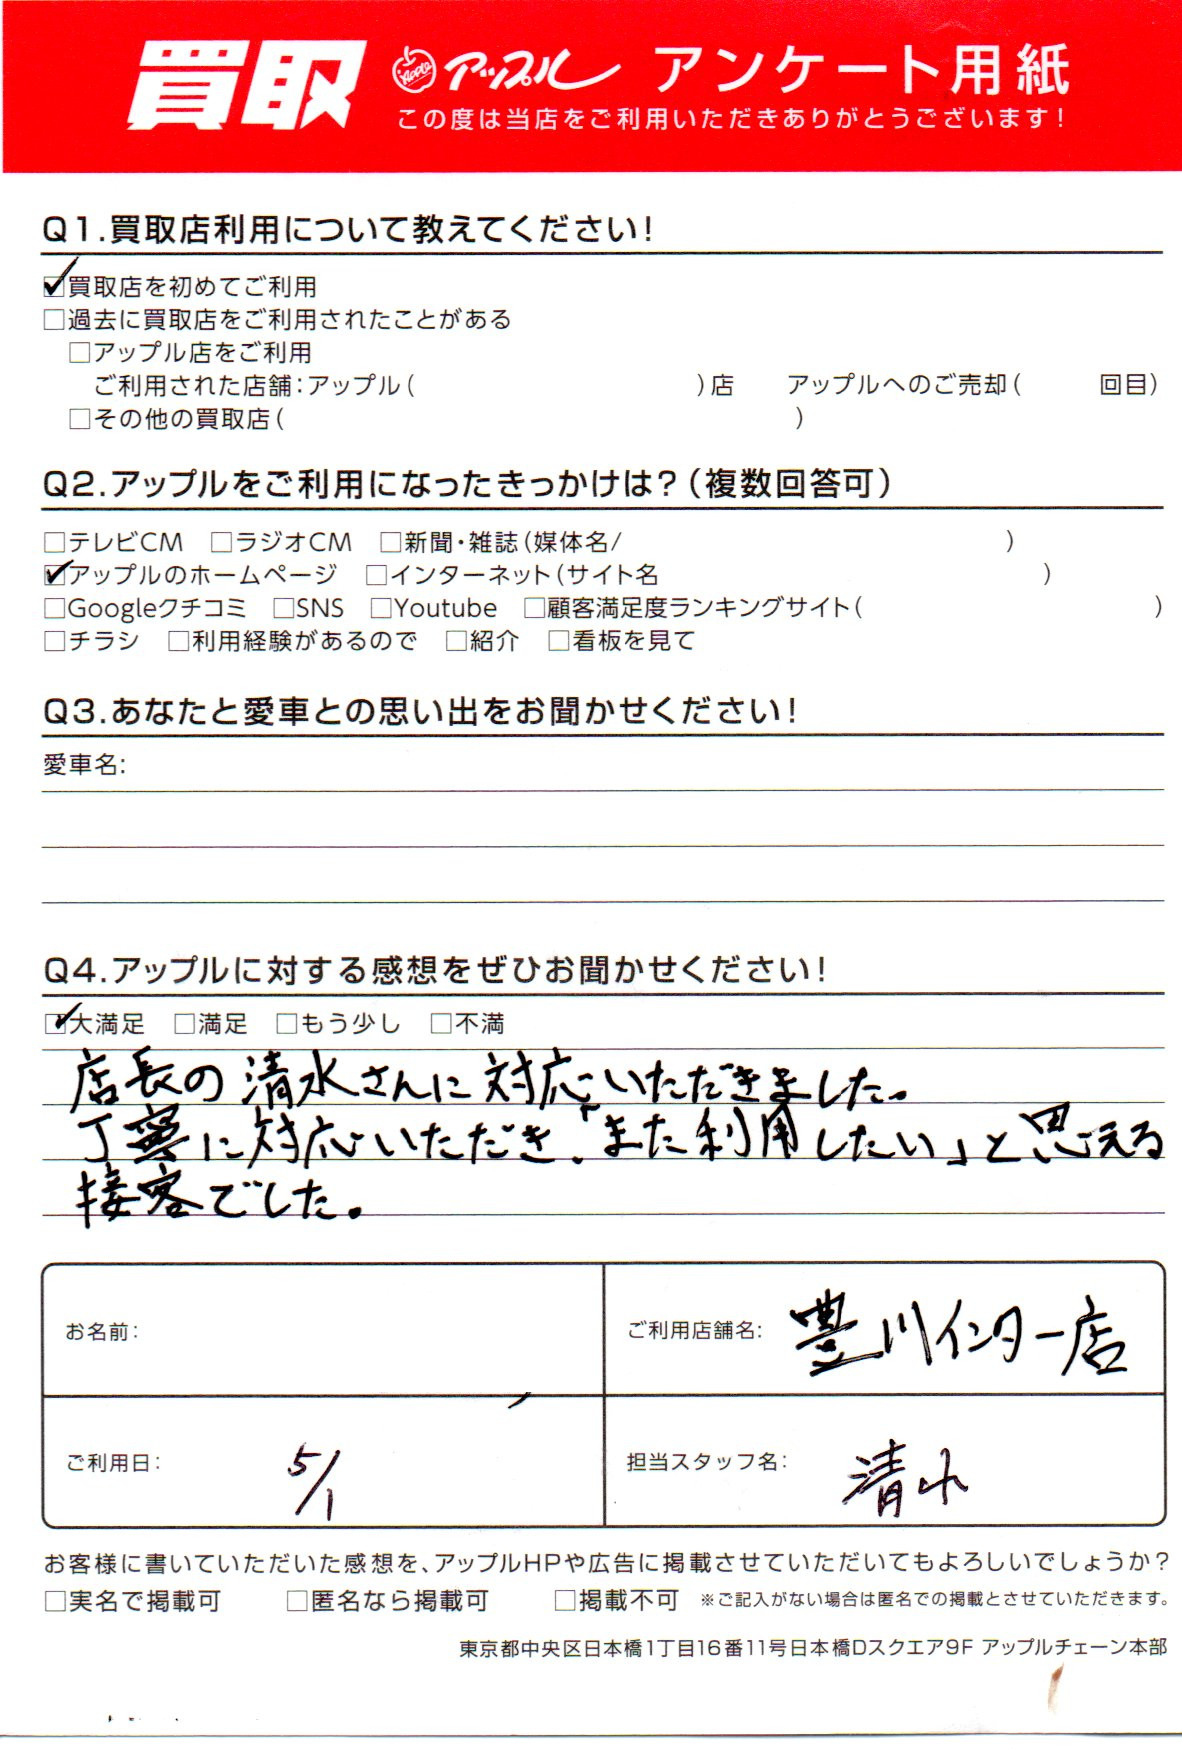 買取 Apple アップル アンケート用紙
この度は当店をご利用いただきありがとうございます!
Q1.買取店利用について教えてください!
☑買取店を初めてご利用
□過去に買取店をご利用されたことがある
□アップル店をご利用
ご利用された店舗:アップル( )店 アップルへのご売却( 回目)
□その他の買取店( )
Q2.アップルをご利用になったきっかけは?(複数回答可)
□テレビCM □ラジオCM □新聞・雑誌(媒体名/ )
☑アップルのホームページ □インターネット(サイト名 )
□Googleクチコミ □SNS □Youtube □顧客満足度ランキングサイト( )
□チラシ □利用経験があるので □紹介 □看板を見て
Q3.あなたと愛車との思い出をお聞かせください!
愛車名:
Q4.アップルに対する感想をぜひお聞かせください!
☑大満足 □満足 □もう少し □不満
店長の清水さんに対応いただきました。
丁寧に対応いただき、「また利用したい」と思える
接客でした。
お名前:
ご利用店舗名: 豊川インター店
ご利用日: 5/1
担当スタッフ名: 清水
お客様に書いていただいた感想を、アップルHPや広告に掲載させていただいてもよろしいでしょうか?
□実名で掲載可 □匿名なら掲載可 □掲載不可 ※ご記入がない場合は匿名での掲載とさせていただきます。
東京都中央区日本橋1丁目16番11号日本橋Dスクエア9F アップルチェーン本部